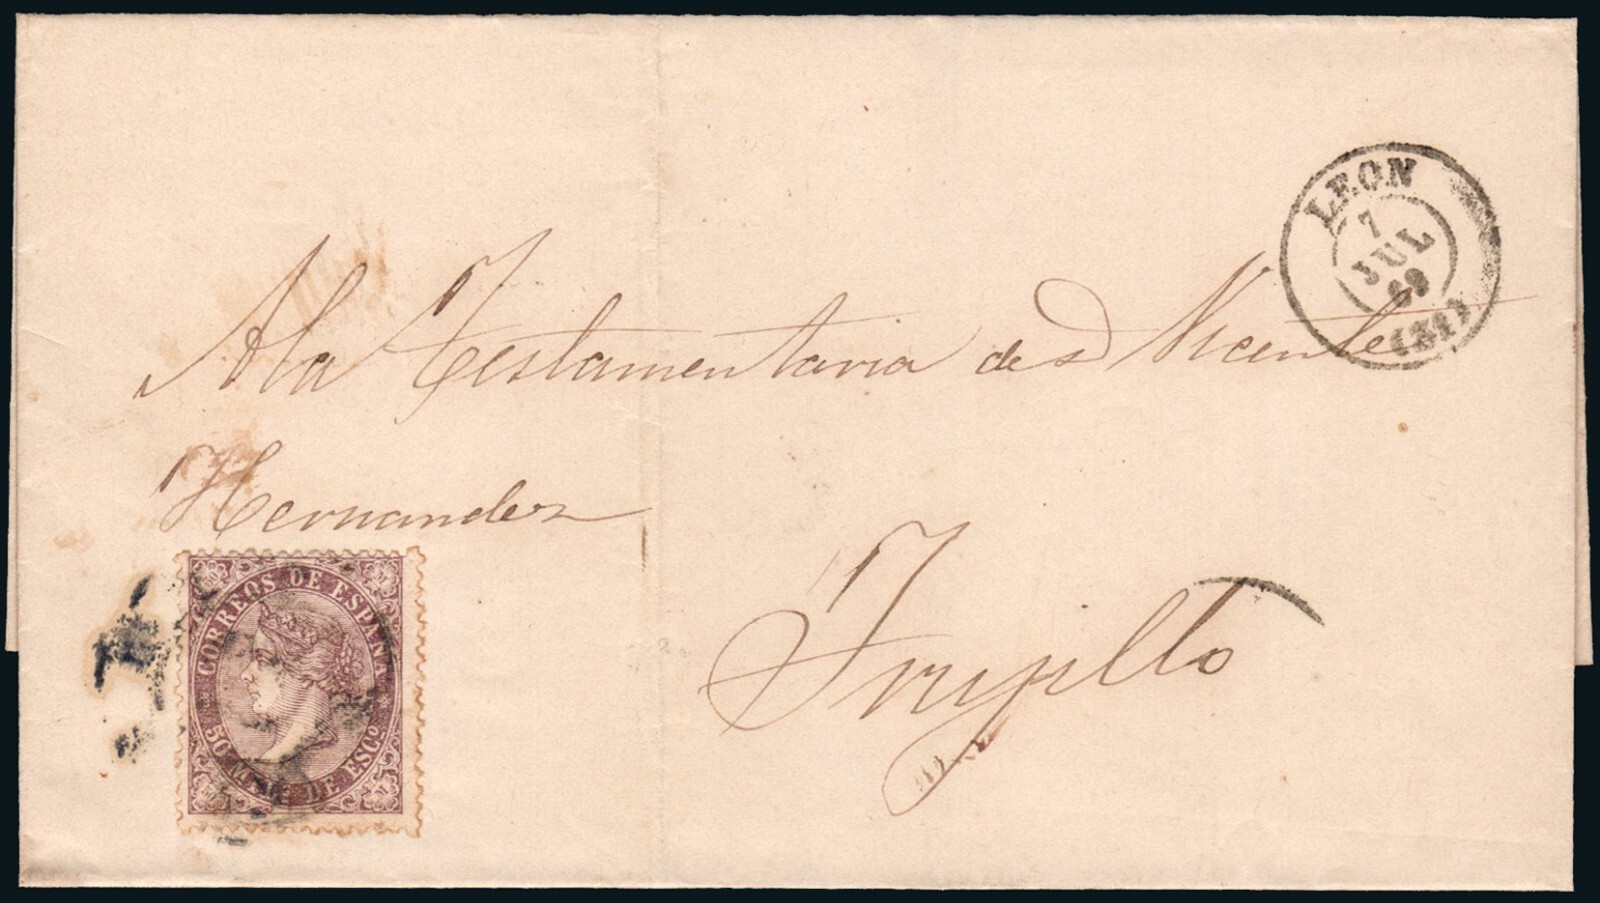 LEON
7
JUL
69
(31)
A la Testamentaria de D Vicente
Hernandez
CORREOS DE ESPAÑA
50 MILS DE ESCO
Trujillo